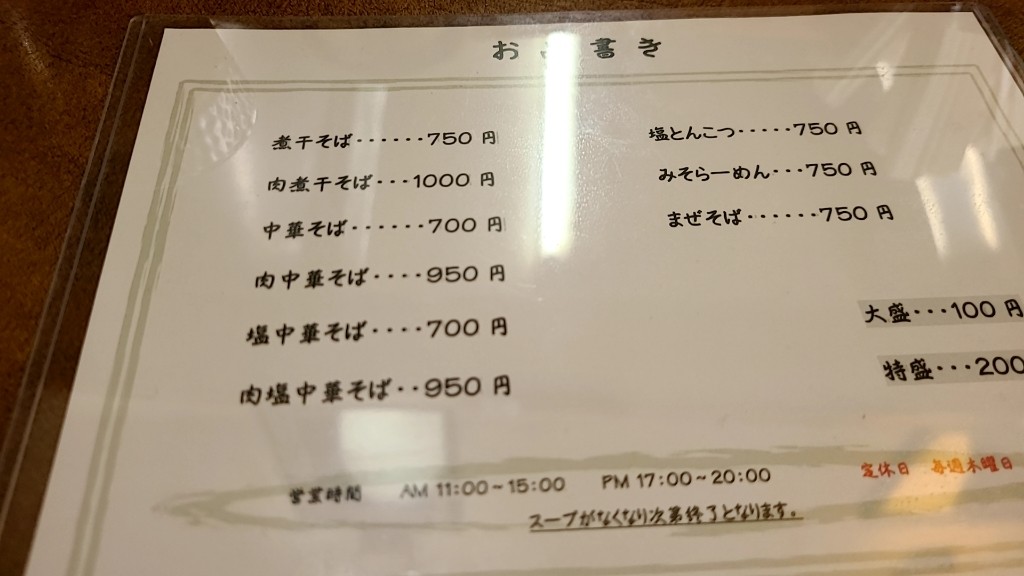 お品書き
煮干そば・・・・・・750 円
肉煮干そば・・・1000 円
中華そば・・・・・・700 円
肉中華そば・・・・950 円
塩中華そば・・・・700 円
肉塩中華そば・・950 円
塩とんこつ・・・・・750 円
みそらーめん・・・750 円
まぜそば・・・・・・750 円
大盛・・・100 円
特盛・・・200
営業時間 AM 11:00~15:00 PM 17:00~20:00
定休日 毎週木曜日
スープがなくなり次第終了となります。